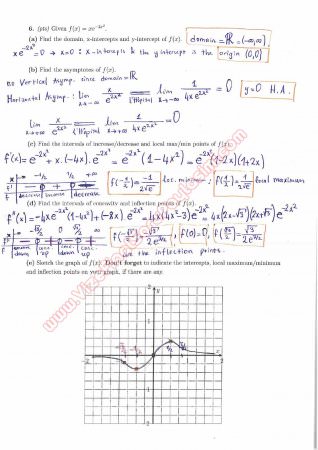 6. (pts) Given f(x) = xe^{-2x²}.
(a) Find the domain, x-intercepts and y-intercept of f(x). domain = ℝ = (-∞,∞).
xe^{-2x²} = 0 → x=0 : x-intercepts & the y intercept is the origin (0,0)
(b) Find the asymptotes of f(x).
no Vertical Asymp. since domain = ℝ
Horizontal Asymp: lim x→-∞ x/e^{2x²} = L'Hôpital lim x→-∞ 1/4xe^{2x²} = 0 y=0 H.A.
lim x→+∞ x/e^{2x²} = L'Hôpital lim x→+∞ 1/4xe^{2x²} = 0
(c) Find the intervals of increase/decrease and local max/min points of f(x).
f'(x) = e^{-2x²} + x.(-4x).e^{-2x²} = e^{-2x²}(1-4x²) = e^{-2x²}(1-2x)(1+2x)
x -∞ -1/2 1/2 +∞
f' - 0 + 0 -
f decrease increase decrease f(-1/2) = -1/2√e loc. minimum ; f(1/2) = 1/2√e local maximum
(d) Find the intervals of concavity and inflection points of f(x).
f''(x) = -4xe^{-2x²}(1-4x²) + (-8x) e^{-2x²} = 4x(4x²-3)e^{-2x²} = 4x(2x-√3)(2x+√3)e^{-2x²}
x -∞ -√3/2 0 √3/2 ∞
f'' - 0 + 0 - 0 +
f conc. down conc. up conc. down conc. up f(-√3/2) = -√3/2e^{3/2} ; f(0)=0, f(√3/2) = √3/2e^{3/2}
are the inflection points.
(e) Sketch the graph of f(x). Don't forget to indicate the intercepts, local maximum/minimum
and inflection points on your graph, if there are any.